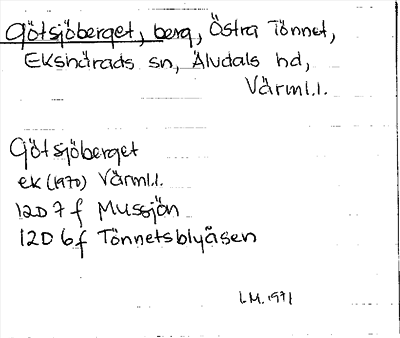 Götsjöberget, berg, Östra Tönnet,
Ekshärads sn, Älvdals hd,
Värml.l.
Götsjöberget
ek (1970) Värml.l.
12D 7 f Mussjön
12D 6 f Tönnetsblyåsen
L.M. 1971